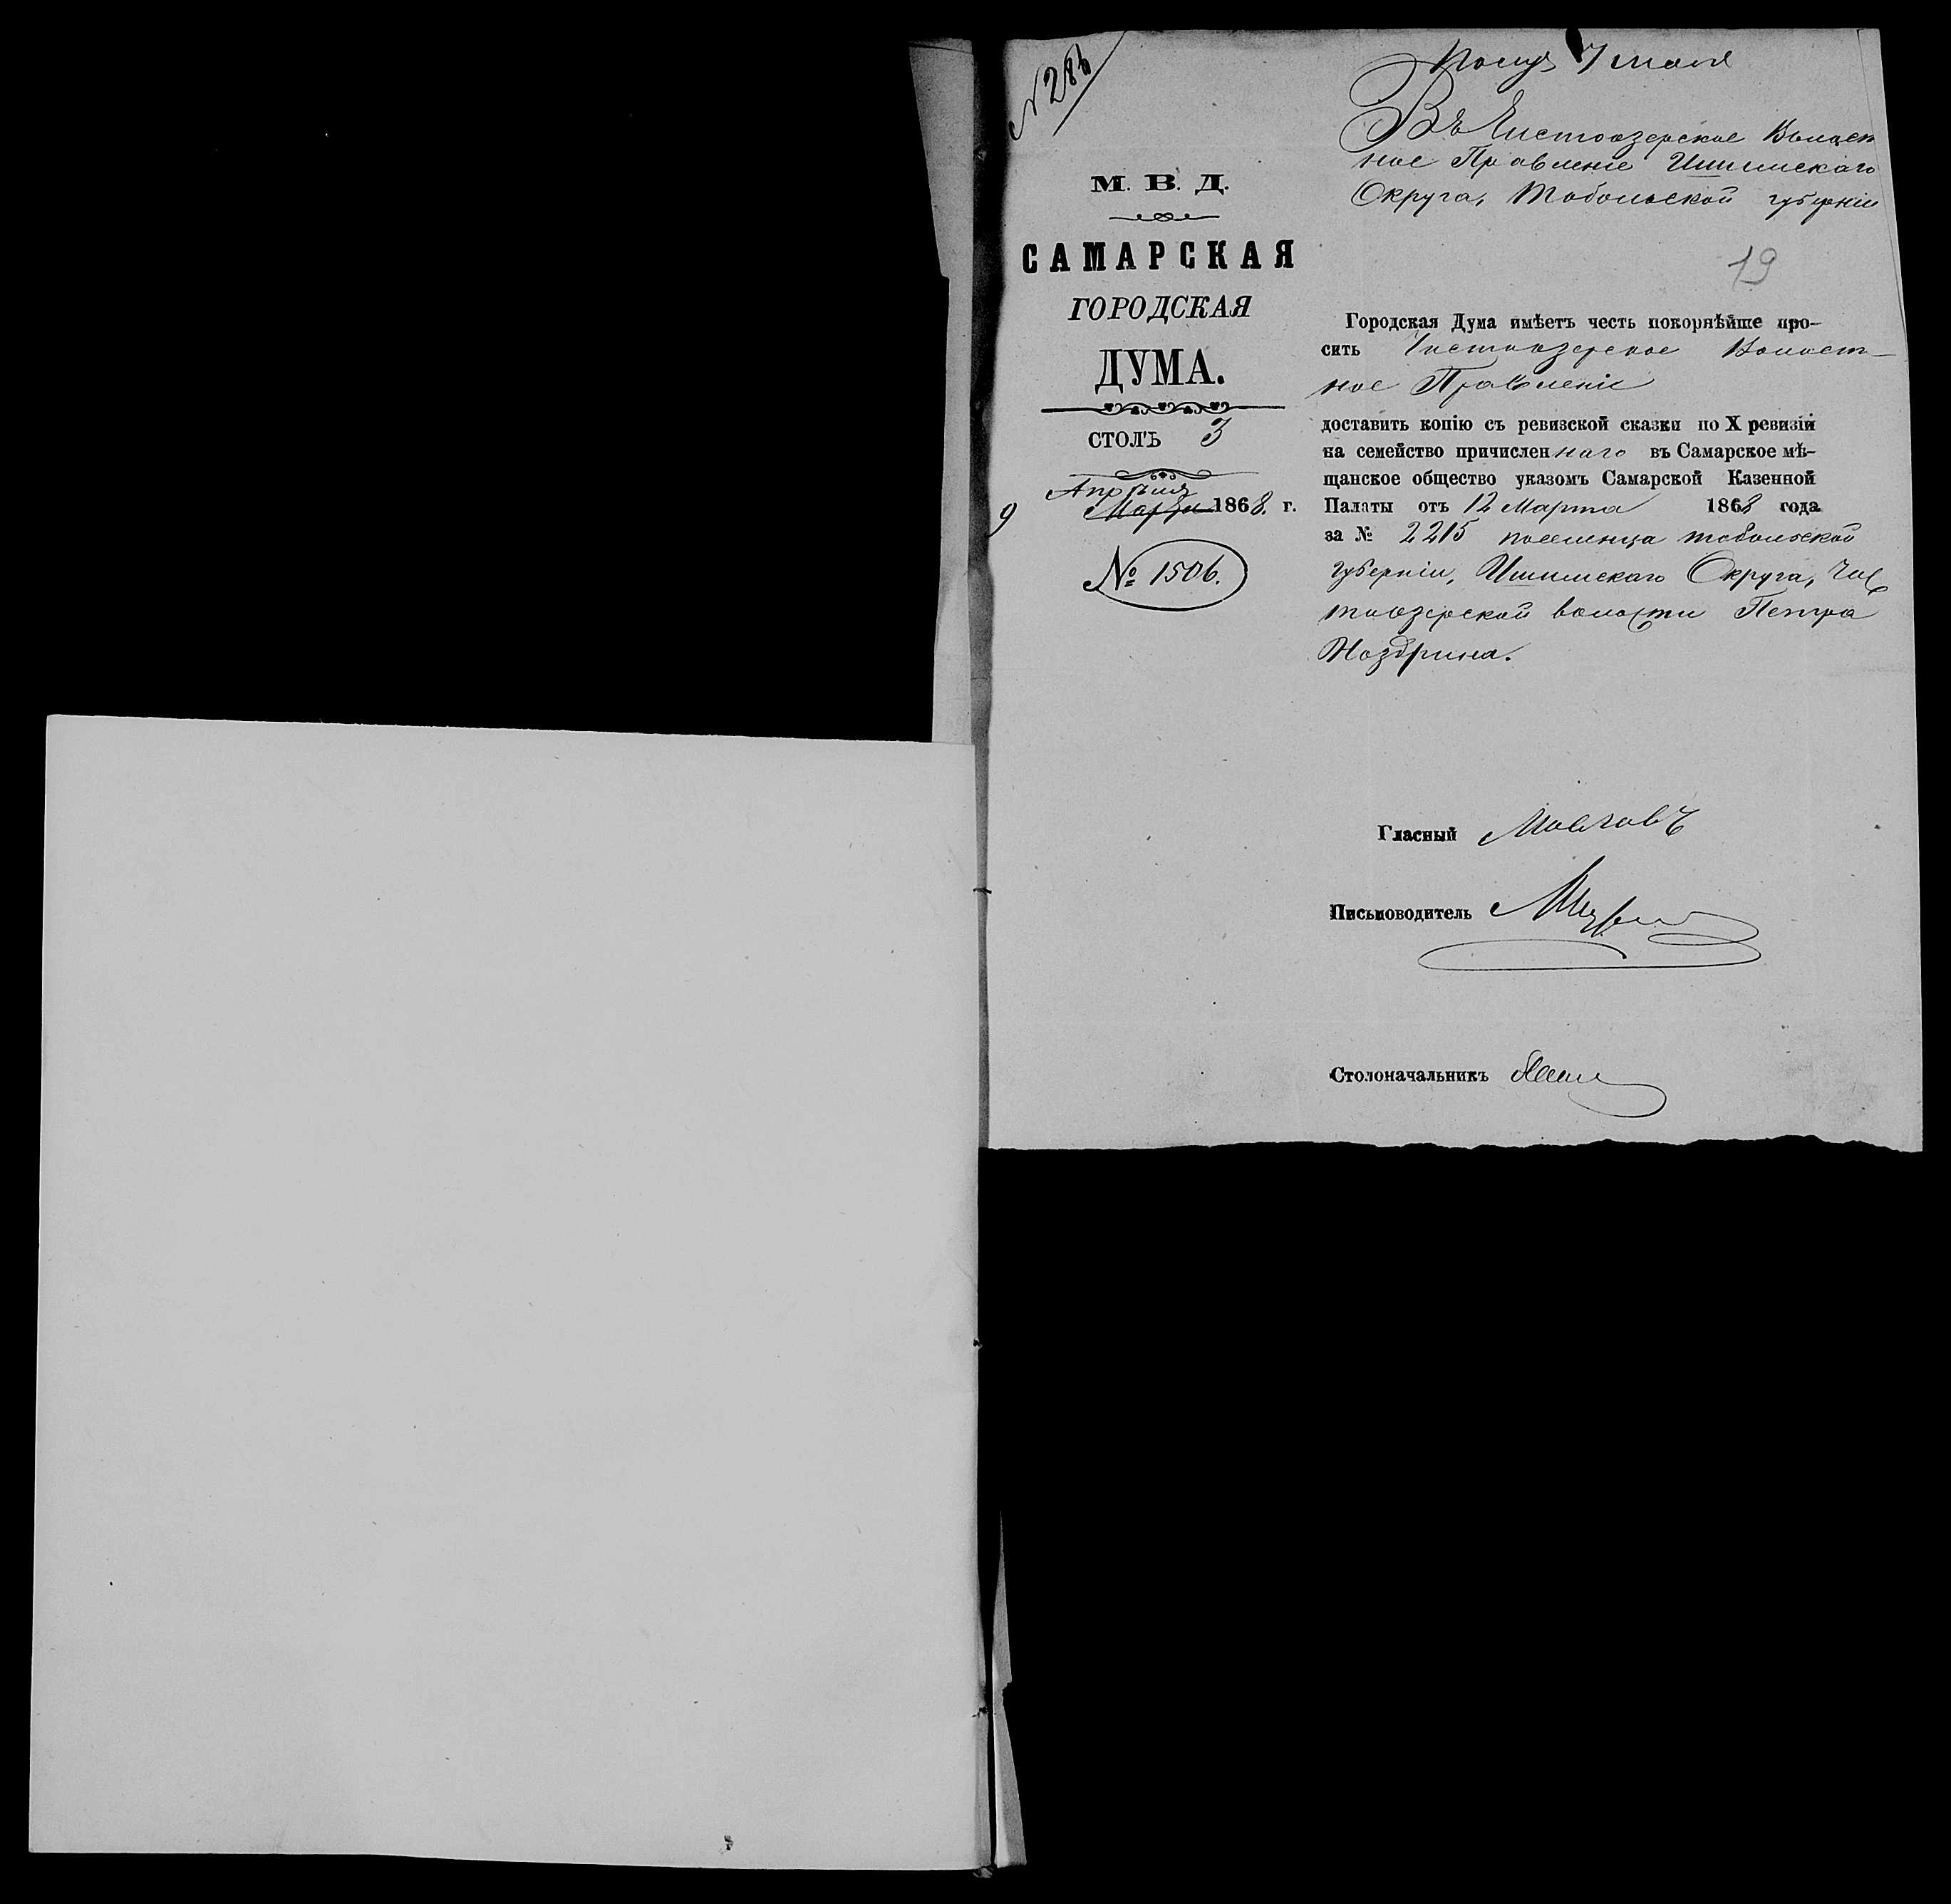 № 286
Получ 7 мая
Въ Чистоозерское Волост
ное Правленіе Ишимскаго
Округа, Тобольской губерніи
19
М. В. Д.
САМАРСКАЯ
ГОРОДСКАЯ
ДУМА.
СТОЛЪ 3
Апрѣля
9 Марта 1868. г.
№ 1506.
Городская Дума имѣетъ честь покорнѣйше про-
сить Чистоозерское Волост-
ное Правленіе
доставить копію съ ревизской сказки по X ревизіи
на семейство причисленнаго въ Самарское мѣ-
щанское общество указомъ Самарской Казенной
Палаты отъ 12 Марта 1868 года
за № 2215 поселенца тобольской
губерніи, Ишимскаго Округа, Чис
тоозерской волости Петра
Ноздрина.
Гласный
Письмоводитель
Столоначальникъ